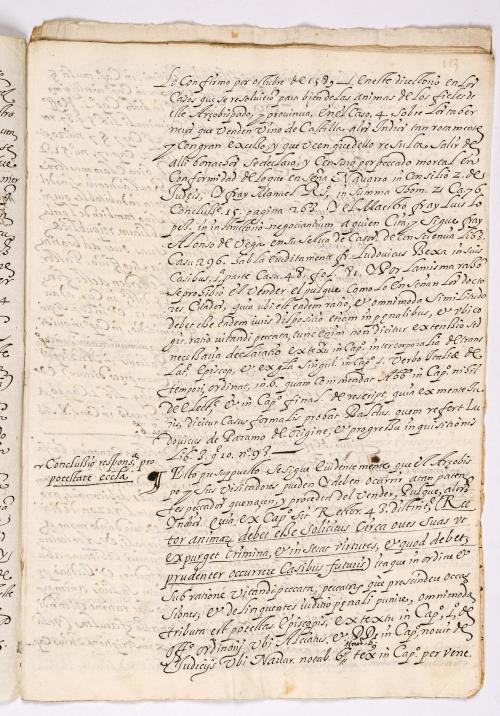 113
lo Confirmo por octubre de 1589 — Y en este directorio en los
Casos que se resolvieron para bien de las animas de los fieles de
este Arçobispado, y provincia, En el Caso. 4. Sobre los taber
neros que Venden Vino de Castilla, a los Indios tan rotamente
y con gran exceso, y que veen que dello resulta Salir de
alli borrachos se declaro, y Censuro por peccado mortal en
Conformidad de lo que enseña Navarro in Consilio 2. de
Iudeis, y fray Manuel Rs. in summa thom. 2. Ca. 76
Conclus. 15. pagina 263. Y el Maestro fray Luis Lo
pes. in instructorio negociantium a quien Cita y Sigue fray
Alonso de Vega en su Selva de Casos de Consciencia
Casu 296. tabla eruditamente fr. Ludovicus Bexa in suis
Casibus, 1. parte Casu. 48. fol. 81. Y por la misma rason
se prohibio el Vender el pulque Como lo enseñan los docto
res Citados, quia ubi est eadem ratio, et omnimoda similitudo
debet esse eadem iuris dispositio etiam in penalibus, et ubi co
git ratio vitandi peccata, tunc enim non dicitur extensio sed
necessaria declaratio ex textu in Cap. in corporalia de trans
lat. Episcop, et ex gla singul. in Cap. 1. Verbo Italiæ de
tempori. ordinat, in 6. quam commendat Abb in Cap.
dilectus, et in Cap. final. de rescript. quia ex mente
ris, dicitur Casus formalis probat Paschus. quem refert Lu
dovicus de Paramo de Origine, et progressu inquisitionis
Lib. 3. q. 10. nº. 93. —
Conclussio respons. pro
potestate eccla.
Esto pu supuesto. Se sigue evidentemente que el Arçobis
po y sus Visitadores pueden y deben ocurrir a tan paten
tes peccados que nacen, y proceden del Vender, Pulque, a los
Indios. quia ex Cap. sit Rector. 43. distinct, (Rec
tor animæ debet esse solicitus Circa oves suas ut
expurget Crimina, et inserat virtutes, et quod debet
prudenter occurrere Casibus futuris) ita que in ordine et
sub ratione vitandi peccata, peccatis que prescindendo occa
siones, et delinquentes iuditio penali punire, omnimoda
tributa est potestas Episcopis, ex textu in Cap. 1. de
off. ordinarij Ubi Alciatus, et DD. in Cap. novit de
Iudicijs Ubi Navar. notab. 6. tex in Cap. per vene